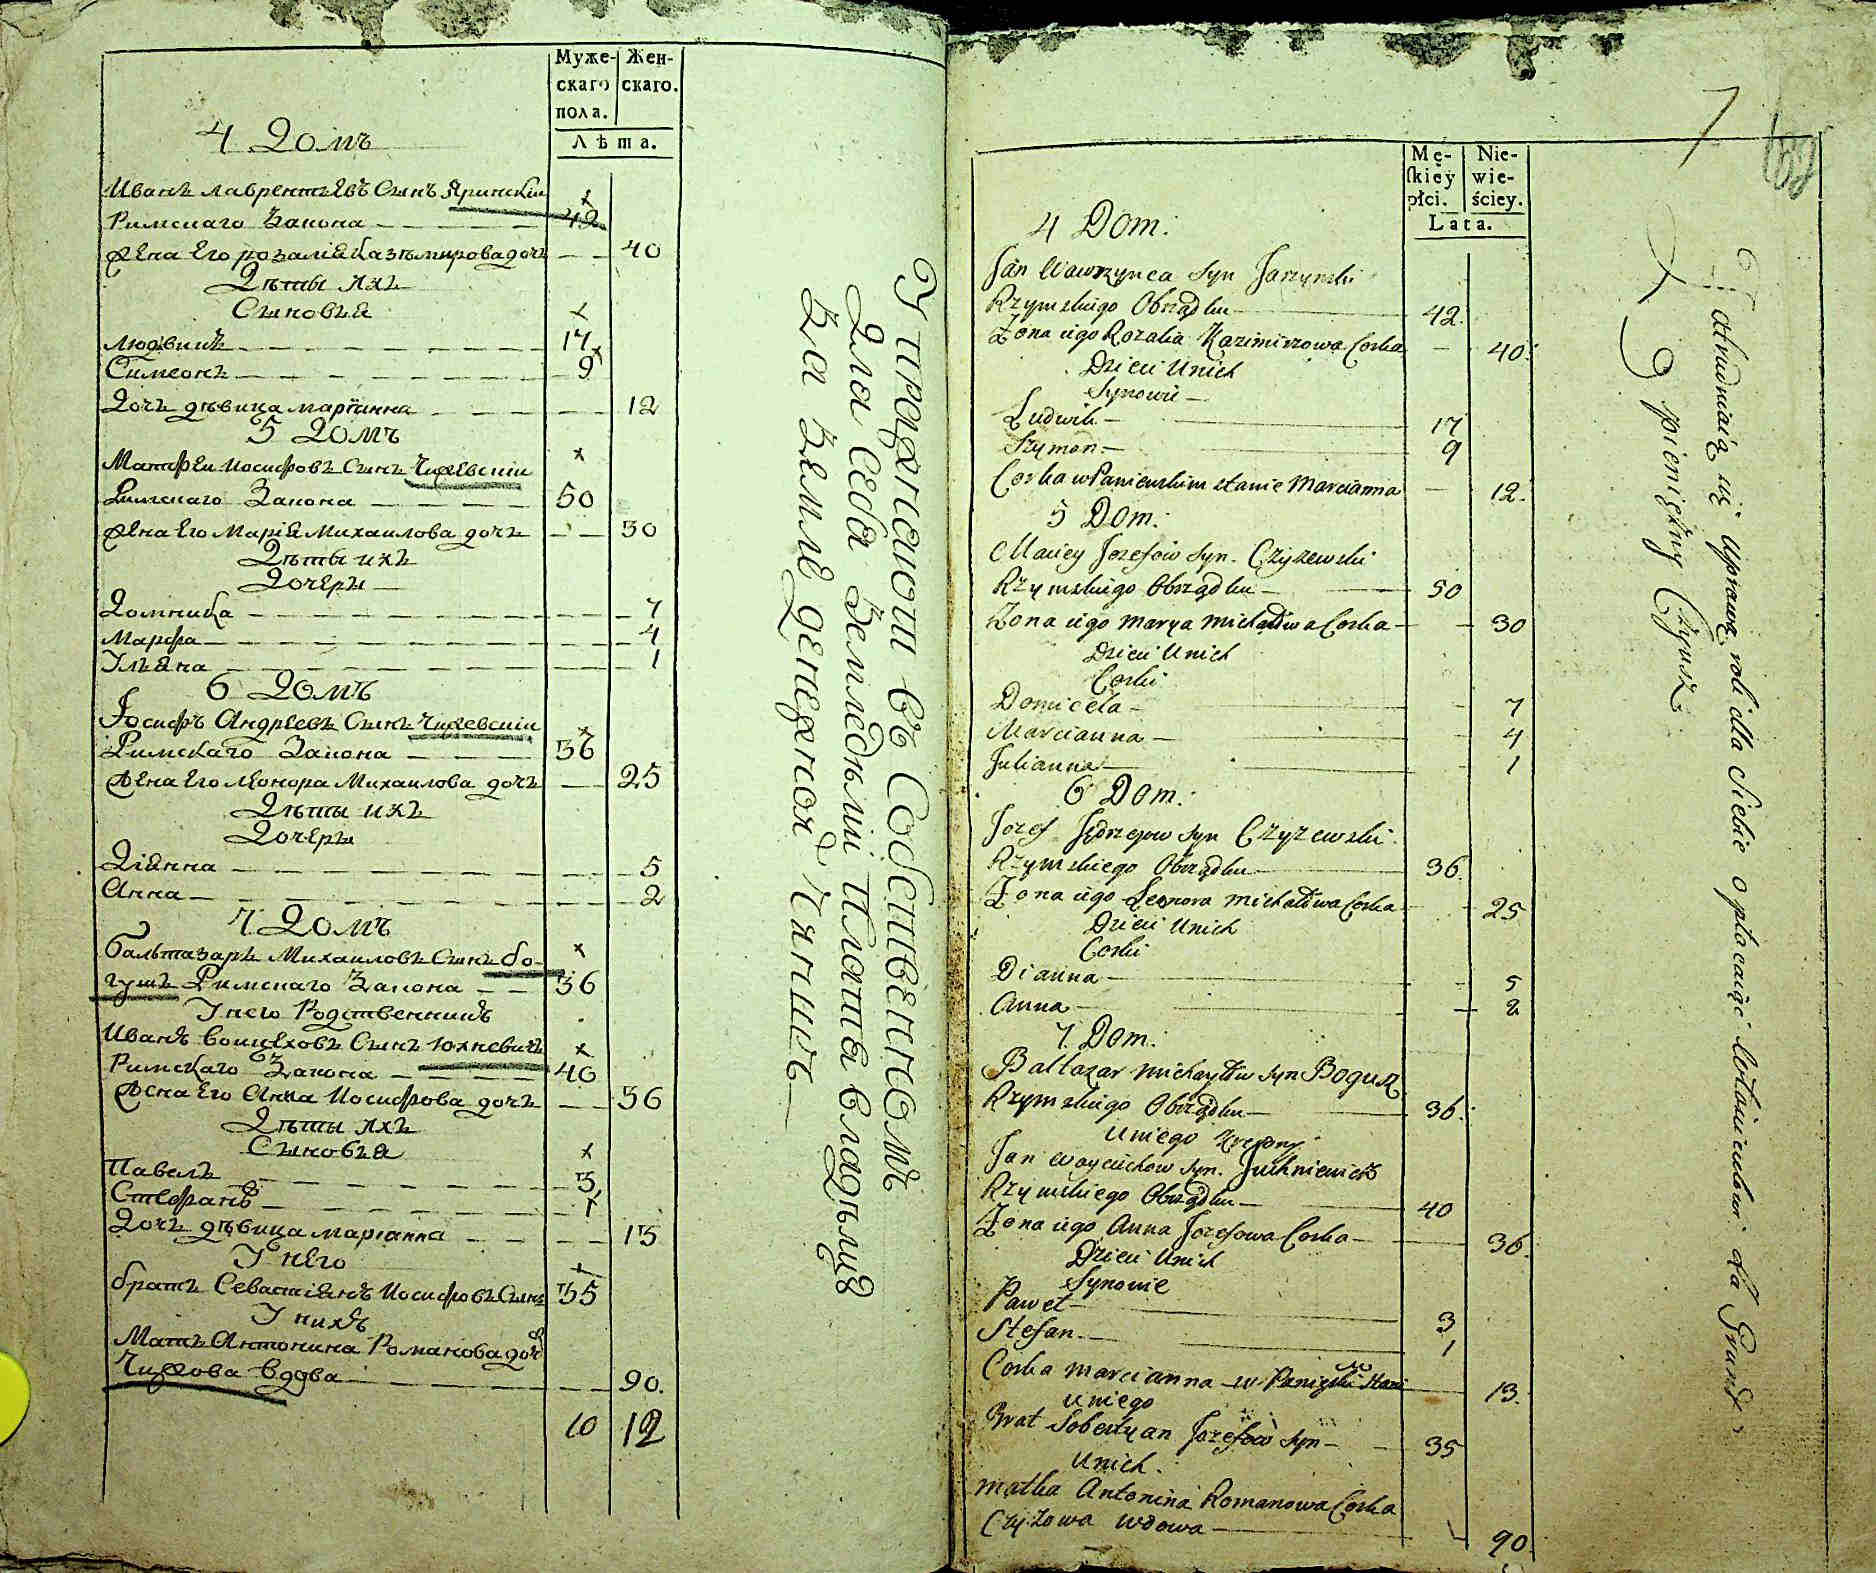 Муже-
скаго
пола.
Жен-
скаго.
Лѣта.
4 Домъ
Иванъ лаврентьевъ Сынъ Яринскїи
Римскаго Закона 42
жена Его розалия Казѣмирова дочь 40
Дѣты ихъ
Сыновья
людвикъ 17
Симеонъ 9
Дочь дѣвица марїанна 12
5 Домъ
Матфеи Иосифовъ Сынъ Чижевскїи
Римскаго Закона 50
жена Его Марїя Михаилова дочь 30
Дѣты ихъ
Дочери
Домицеа 7
Марфа 4
Iльяна 1
6 Домъ
Iосифъ Андреевъ Сынъ Чижевскїи
Римскаго Закона 36
жена Его леонора Михаилова дочь 25
Дѣты ихъ
Дочери
Дїянна 5
Анна 2
7 Домъ
Бальтазаръ Михаиловъ Сынъ бо-
гушъ Римскаго Закона 36
У него Родственникъ
Иванъ воицеховъ Сынъ юхневичъ
Римскаго Закона 40
жена Его Анна Иосифова дочь 36
Дѣты ихъ
Сыновья
Павелъ 3
Стефанъ 1
Дочь дѣвица марїанна 13
У него
братъ Севастїянъ Иосифовъ Сынъ 35
У нихъ
Мать Антонина Романова дочь
Чижова вдова 90.
10 12
Упражнаюти въ Собственномъ
Для Себя Земледѣлїи Плота владѣлцѣ
За Землѣ денежной Чиншъ
7
Mę-
skiey
płci.
Nie-
wie-
ściey.
Lata.
4 Dom.
Jan Wawrzynca Syn Jarzynski
Rzymskiego Obrządku 42.
Zona iego Rozalia Kazimirowa Corka 40.
Dzieci Unich
Synowie
Ludwik 17
Szymon 9
Corka w Panienskim stanie Marcianna 12.
5 Dom.
Maciey Jozefow Syn. Czyzewski
Rzymskiego Obrządku 50
Zona iego Marya Michałowa Corka 30
Dzieci Unich
Corki
Domicela 7
Marcianna 4
Julianna 1
6 Dom.
Jozef Jędrzejow Syn Czyzewski
Rzymskiego Obrządku 36.
Zona iego Leonora Michałowa Corka 25
Dzieci Unich
Corki
Dianna 5
Anna 2
7. Dom.
Baltazar Michayłow Syn Bogusz
Rzymskiego Obrządku 36.
Uniego Krewny
Jan Woyciechow Syn. Juchniewicz
Rzymskiego Obrządku 40
Zona iego Anna Jozefowa Corka 36.
Dzieci Unich
Synowie
Paweł 3
Stefan 1
Corka Marcianna w Panieński Stani 13.
Uniego
Brat Sobestyan Jozefow Syn 35
Unich.
Matka Antonina Romanowa Corka
Czyżowa Wdowa 90.
Zatrudniaią się uprawą roli dla Siebie opłacaiąc Właścicielowi za Grunt
pieniężny Czynsz